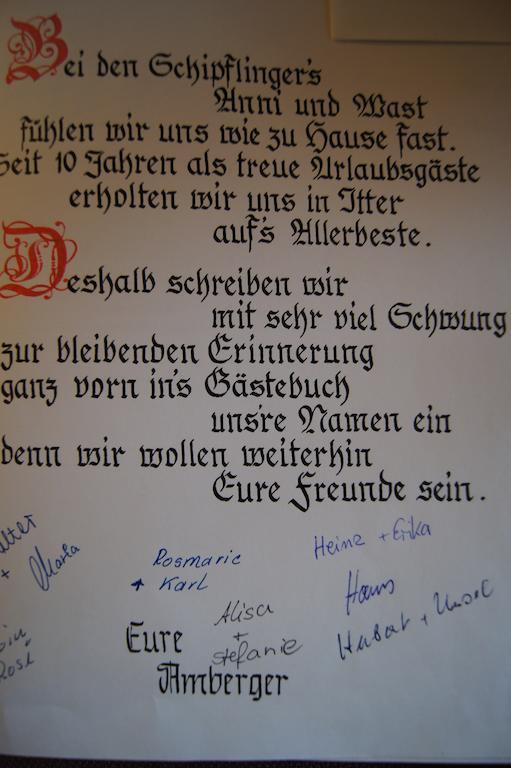 Bei den Schipflinger's
Anni und Wast
fühlen wir uns wie zu Hause fast.
Seit 10 Jahren als treue Urlaubsgäste
erholten wir uns in Itter
auf's Allerbeste.
Deshalb schreiben wir
mit sehr viel Schwung
zur bleibenden Erinnerung
ganz vorn in's Gästebuch
uns're Namen ein
denn wir wollen weiterhin
Eure Freunde sein.
+ Maria
Rosmarie
+ Karl
Heinz + Erika
Hans
Alisa
+
Stefanie
Eure
Amberger